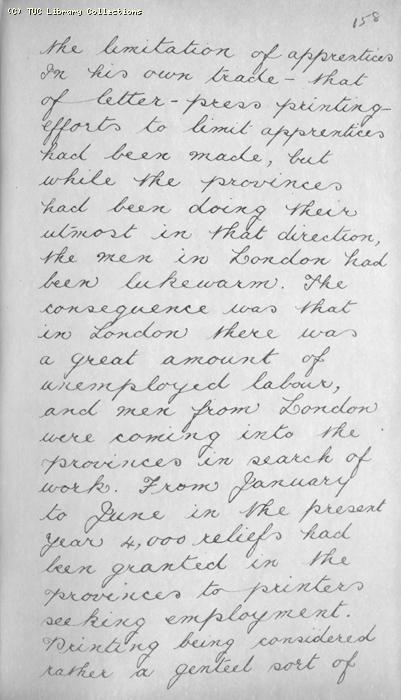 (C) TUC Library Collections
158
the limitation of apprentices
In his own trade - that
of letter-press printing -
efforts to limit apprentices
had been made, but
while the provinces
had been doing their
utmost in that direction,
the men in London had
been lukewarm. The
consequence was that
in London there was
a great amount of
unemployed labour,
and men from London
were coming into the
provinces in search of
work. From January
to June in the present
year 4,000 reliefs had
been granted in the
provinces to printers
seeking employment.
Printing being considered
rather a genteel sort of